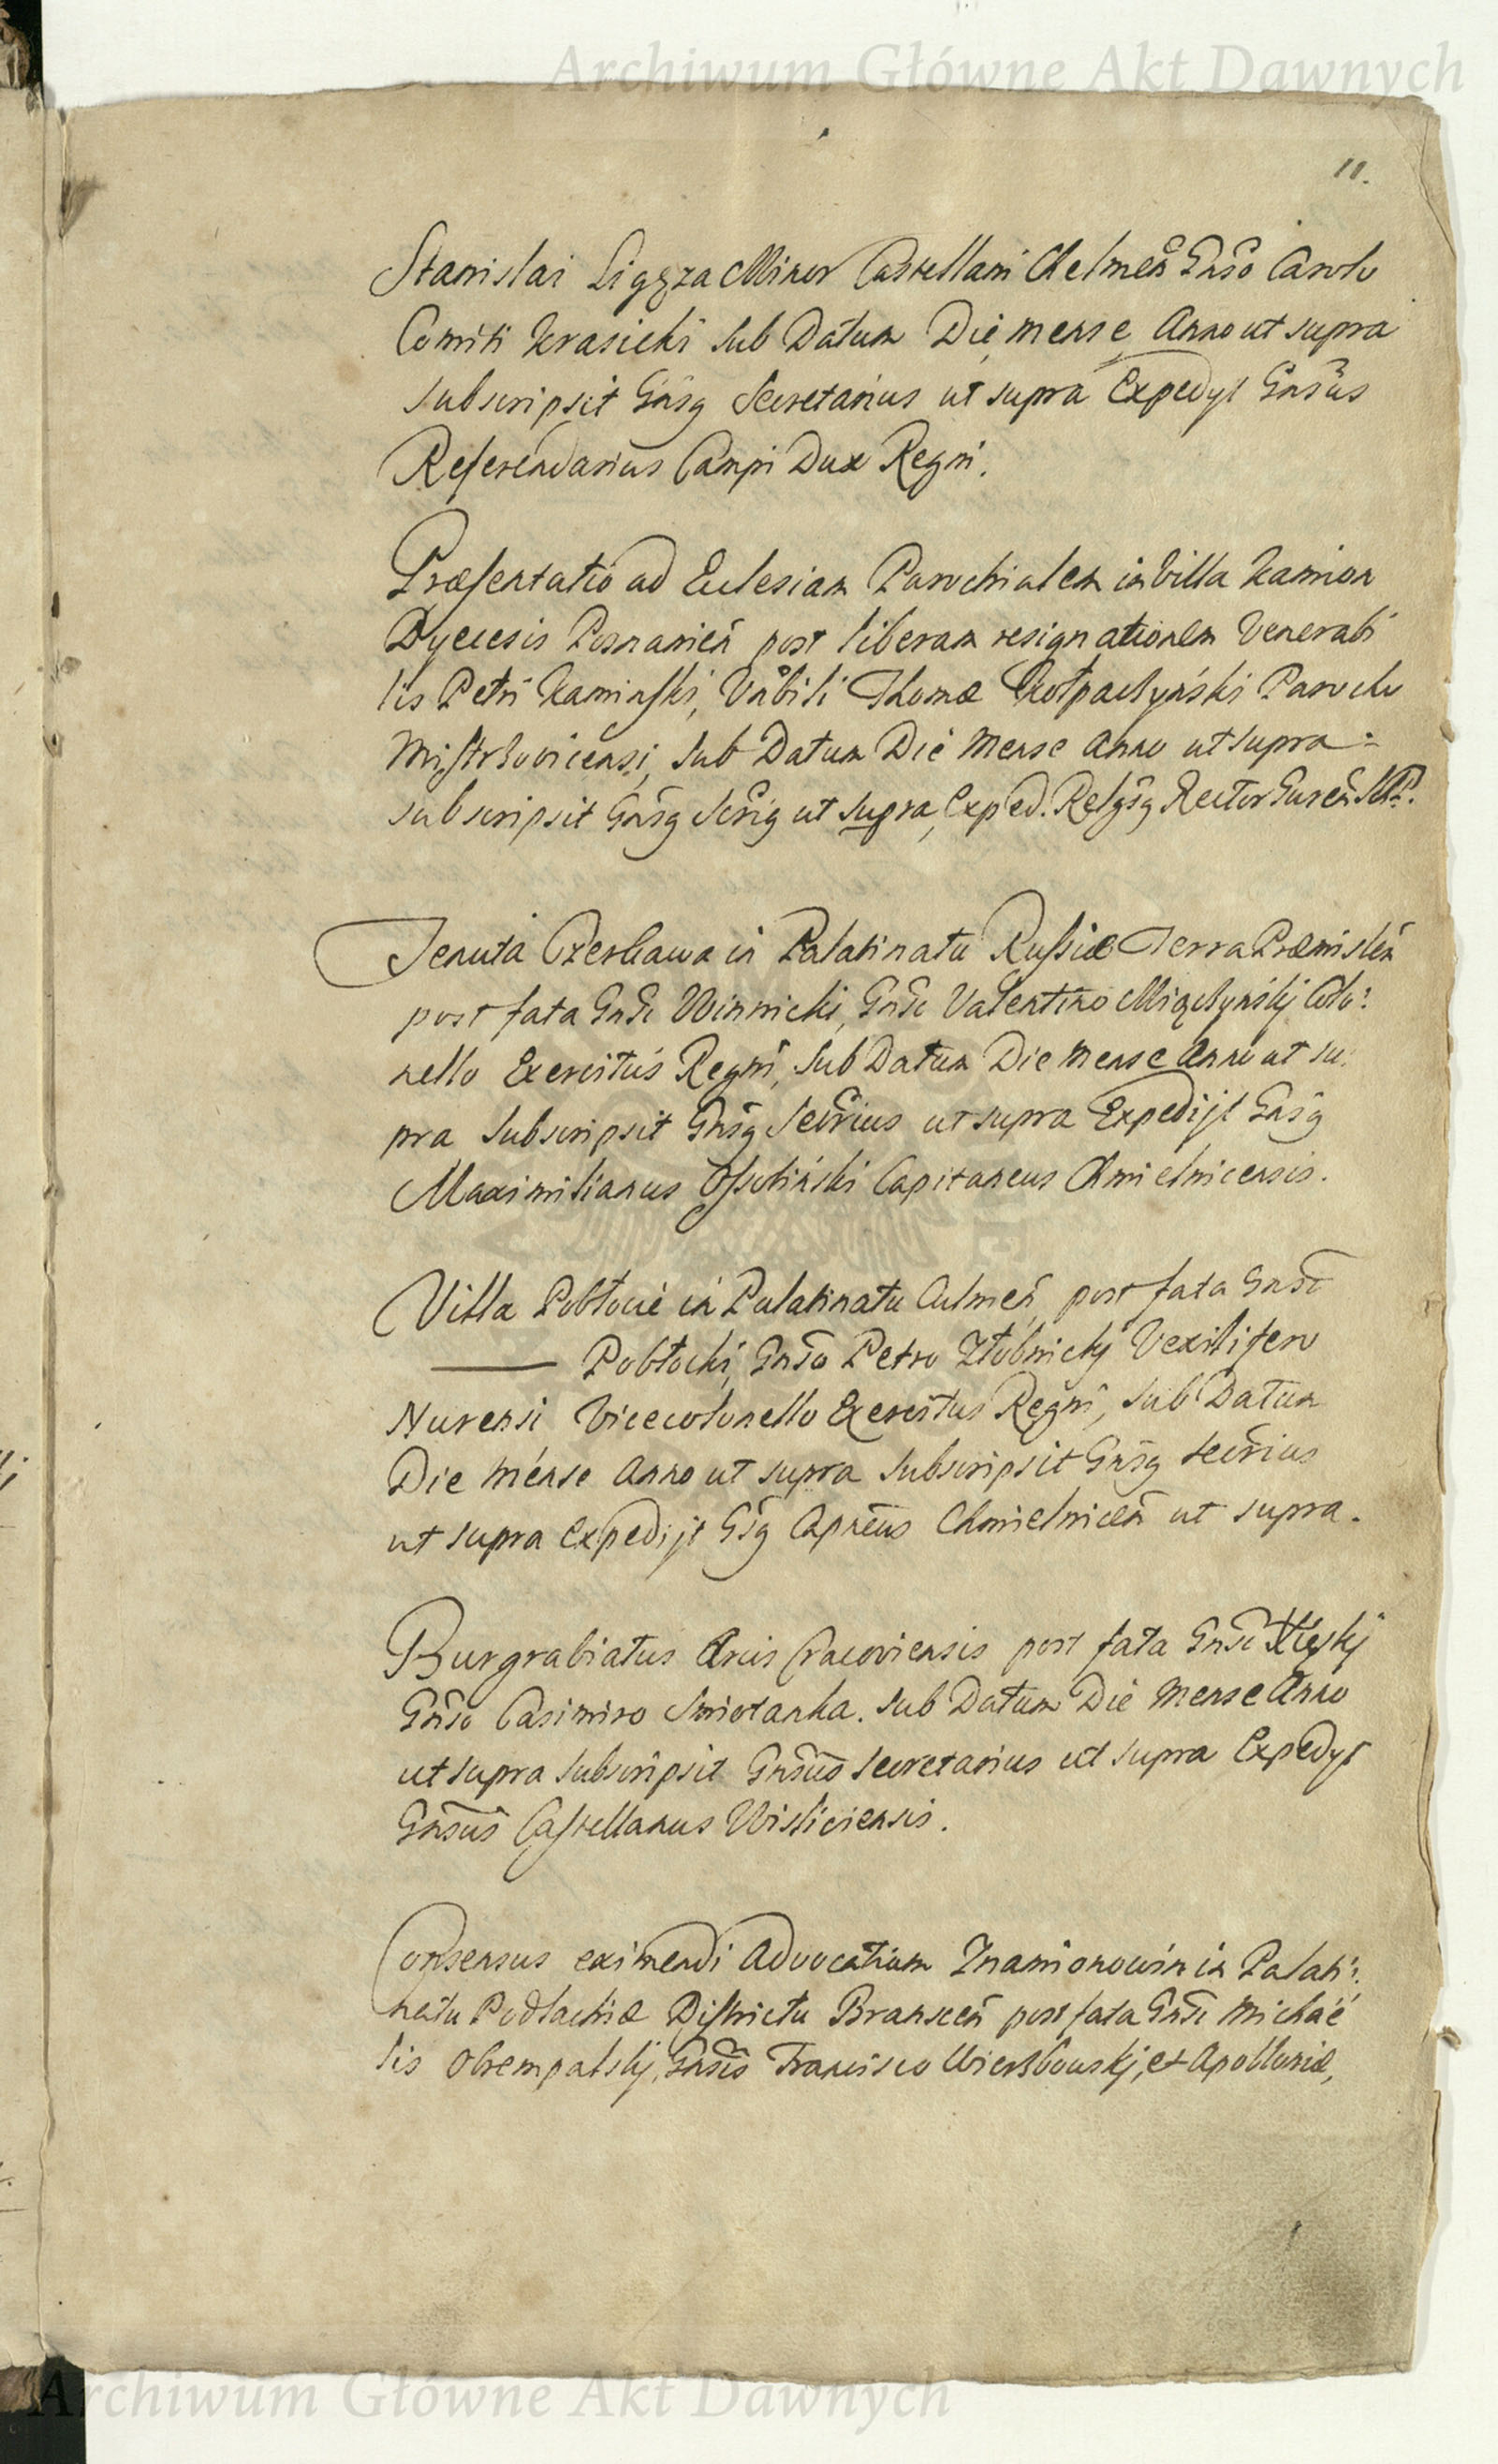 Archiwum Główne Akt Dawnych
11.
Stanislai Ligęza Minor Castellani Chelmen̄ Gnso Carolo
Comiti Krasicki sub Datum Die, mense, Anno ut supra
subscripsit Gnsq Secretarius ut supra Expedyt Gnsus
Referendarius Campi Dux Regni.
Præsentatio ad Eclesiam Parochialem in Villa Kamion
Dyecesis Posnanien̄ post liberam resignationem Venerabi
lis Petri Kaminski, Vnbili Thomæ Parocho
sub Datum Die Mense Anno ut supra =
subscripsit Gnsq Scriq ut supra, Exped. Relgsq Rector
Tenuta Czerhawa in Palatinatu Russiæ Terra Præmislen̄
post fata Gnsi Winnicki, Gnso Valentino Miączynskj Colo:
nello Exercitus Regni, sub Datum Die Mense Anno ut su:
pra subscripsit Gnsq Secrius ut supra Expedijt Gnsq
Maximilianus Ossolinski Capitaneus Chmielnicensis.
Villa Pobłocie in Palatinatu Culmen̄, post fata Gnsi
——— Pobłocki, Gnso Petro Złobnickj Vexilifero
Nurensi Vicecolonello Exercitus Regni, sub Datum
Die Mense Anno ut supra subscripsit Gnsq secrius
ut supra Expedijt Gsq Capneus Chmielnicen̄ ut supra.
Burgrabiatus Arcis Cracoviensis post fata Gnsi
Gnso Casimiro Smietanka. sub Datum Die Mense Anno
ut supra subscripsit Gnsus secretarius ut supra Expedyt
Gnsus Castellanus Wisliciensis.
Consensus eximendi Advocatiam Znamionowin in Palati:
natu Podlachiæ Districtu Branscen̄ post fata Gnsi Michaë
lis Obrempalskj, Gnsis Francisco Wierzbowskj, et Apolloniæ,
Archiwum Główne Akt Dawnych